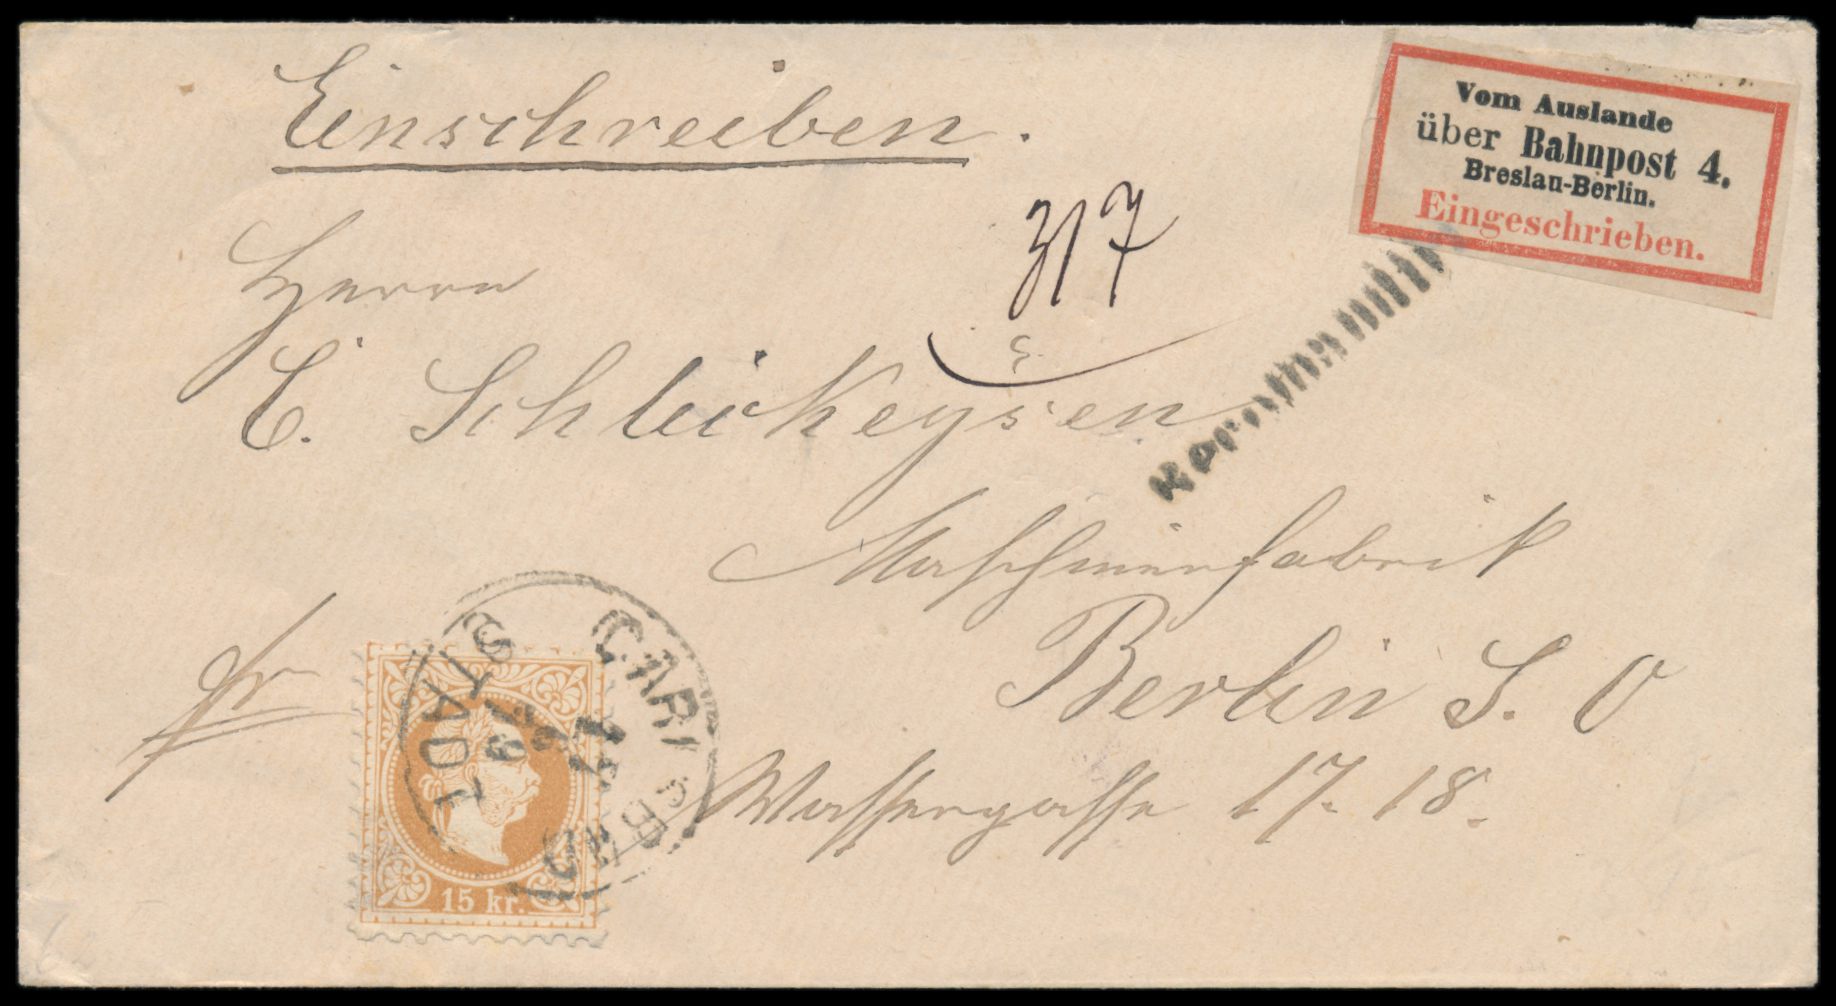 Einschreiben.
Vom Auslande
über Bahnpost 4.
Breslau-Berlin.
Eingeschrieben.
317
Herrn
C. Schlickeysen
Maschinenfabrik
Berlin S. O
Wassergasse 17-18.
fr
STADT
15 kr.